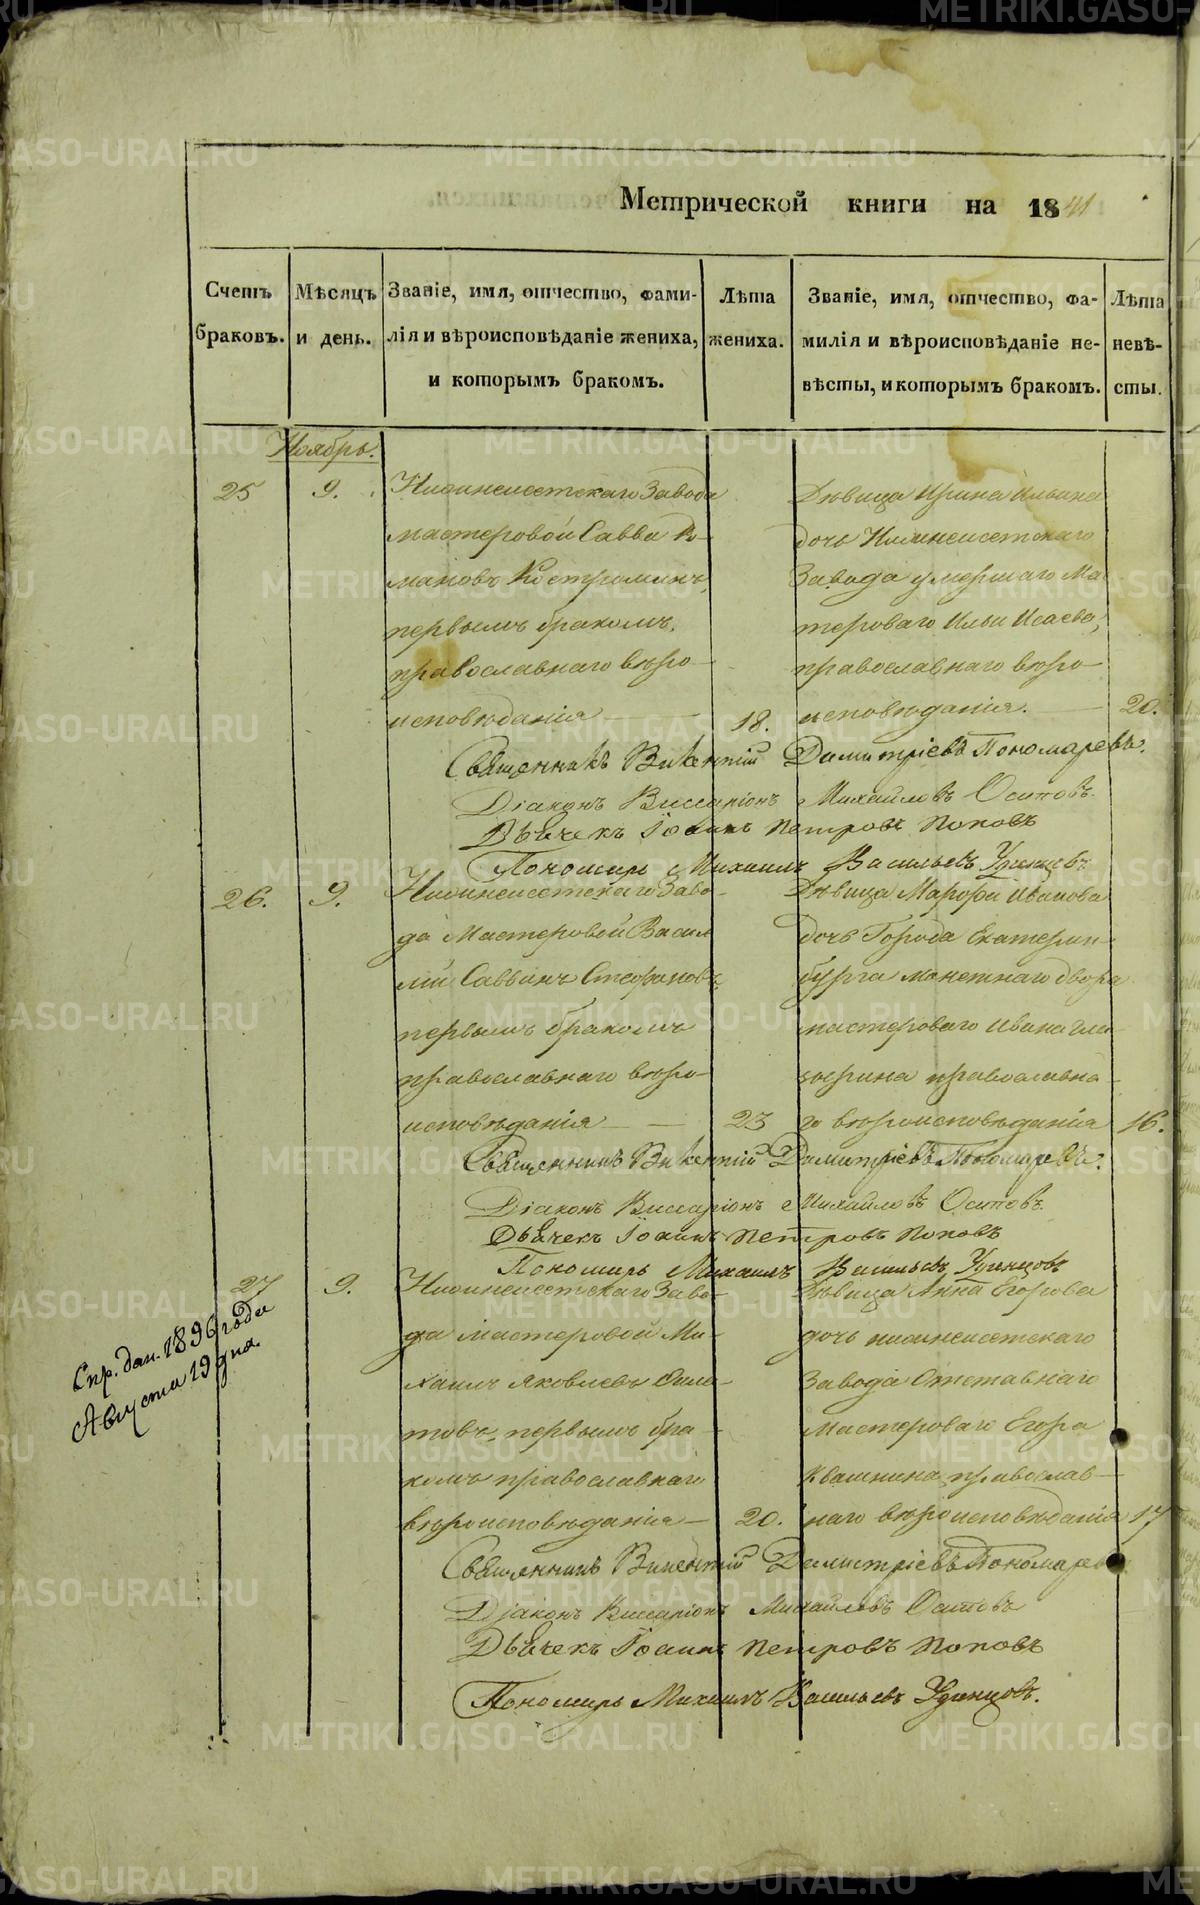 Метрической книги на 1841
Счетъ браковъ.
Мѣсяцъ и день.
Званіе, имя, отчество, фами-
лія и вѣроисповѣданіе жениха,
и которымъ бракомъ.
Лѣта жениха.
Званіе, имя, отчество, фа-
милія и вѣроисповѣданіе не-
вѣсты, и которымъ бракомъ.
Лѣта невѣ-
сты.
Ноябрь.
25
9.
Нижнеисетскаго Завода
мастеровой Савва Ро-
мановъ Костроминъ,
первымъ бракомъ,
православнаго вѣро-
исповѣданія
18.
Дѣвица Ирина Ильина
дочь Нижнеисетскаго
Завода умершаго Мас
тероваго Ильи Исаева,
православнаго вѣро-
исповѣданія.
20.
Священникъ Викентій Димитріевъ Пономаревъ.
Діаконъ Виссаріонъ Михайловъ Осиповъ.
Дьячекъ Іоаннъ Петровъ Поповъ
Пономарь Михаилъ Васильевъ Удинцовъ
26.
9.
Нижнеисетскаго Заво-
да Мастеровой Васи
лій Саввинъ Стефановъ,
первымъ бракомъ
православнаго вѣро-
исповѣданія
23
Дѣвица Марѳа Иванова
дочь Города Екатерин-
бурга монетнаго двора
мастероваго Ивана Гла-
зырина православна-
го вѣроисповѣданія
16.
Священникъ Викентій Димитріевъ Пономаревъ.
Діаконъ Виссаріонъ Михайловъ Осиповъ.
Дьячекъ Іоаннъ Петровъ Поповъ
Пономарь Михаилъ Васильевъ Удинцовъ
27
9.
Нижнеисетскаго Заво-
да мастеровой Ми-
хаилъ Яковлевъ
товъ, первымъ бра-
комъ православнаго
вѣроисповѣданія
20.
Дѣвица Анна Егорова
дочь нижнеисетскаго
Завода Отставнаго
Мастероваго Егора
Квашнина, православ-
наго вѣроисповѣданія
17
Спр. дан. 1896 года
Августа 19 дня.
Священникъ Викентій Димитріевъ Пономарев
Діаконъ Виссаріонъ Михайловъ Осиповъ
Дьячекъ Іоаннъ Петровъ Поповъ
Пономарь Михаилъ Васильевъ Удинцовъ.
METRIKI.GASO-URAL.RU